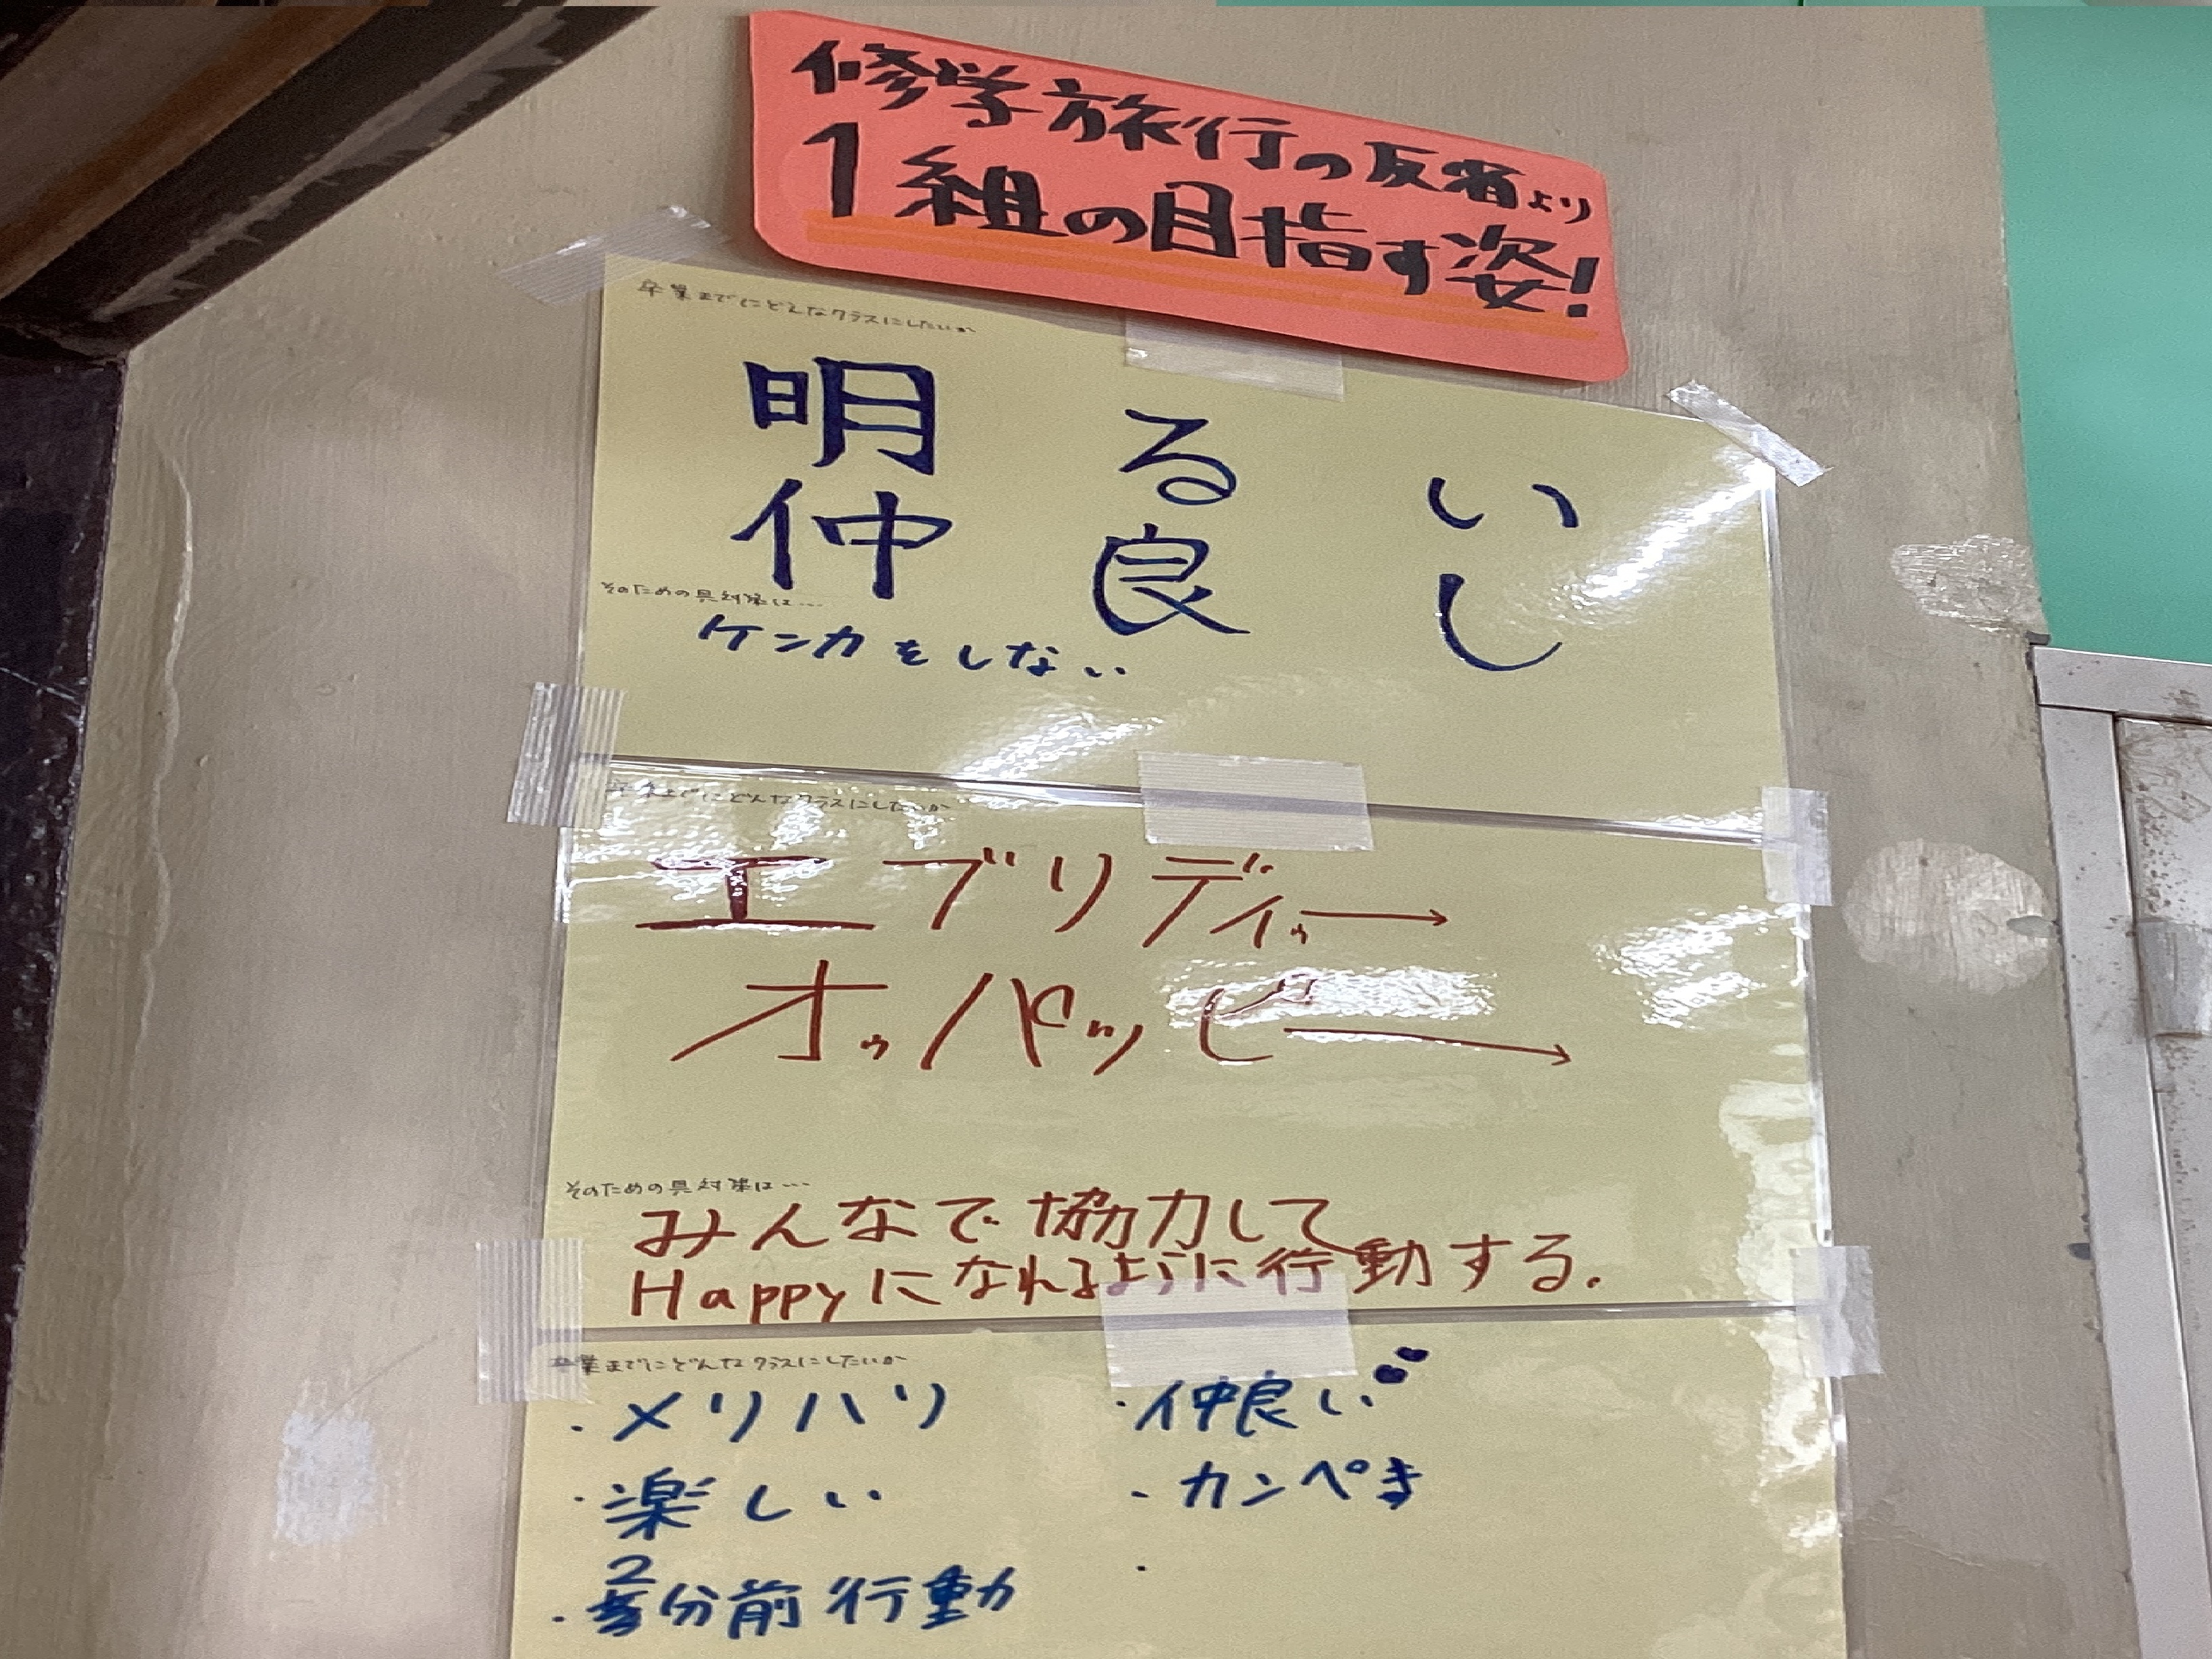 修学旅行の反省より
1組の目指す姿!
卒業までにどんなクラスにしたいか
明るい
仲良し
そのための具対策は…
ケンカをしない
卒業までにどんなクラスにしたいか
エブリディッ→
オッパッピー→
そのための具対策は…
みんなで協力して
Happyになれるように行動する.
卒業までにどんなクラスにしたいか
・メリハリ
・仲良い
・楽しい
・カンペき
・2分前行動
・